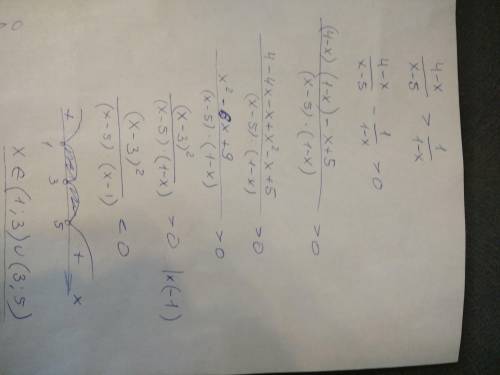 (4-x)/(x-5) > 1/(1-x)
(4-x)/(x-5) - 1/(1-x) > 0
((4-x)·(1-x) - x+5)/((x-5)·(1-x)) > 0
(4-4x-x+x²-x+5)/((x-5)·(1-x)) > 0
(x²-6x+9)/((x-5)·(1-x)) > 0
(x-3)²/((x-5)·(1-x)) > 0 |x(-1)
(x-3)²/((x-5)·(x-1)) < 0
+ 1 3 5 + x
x∈(1;3)∪(3;5)